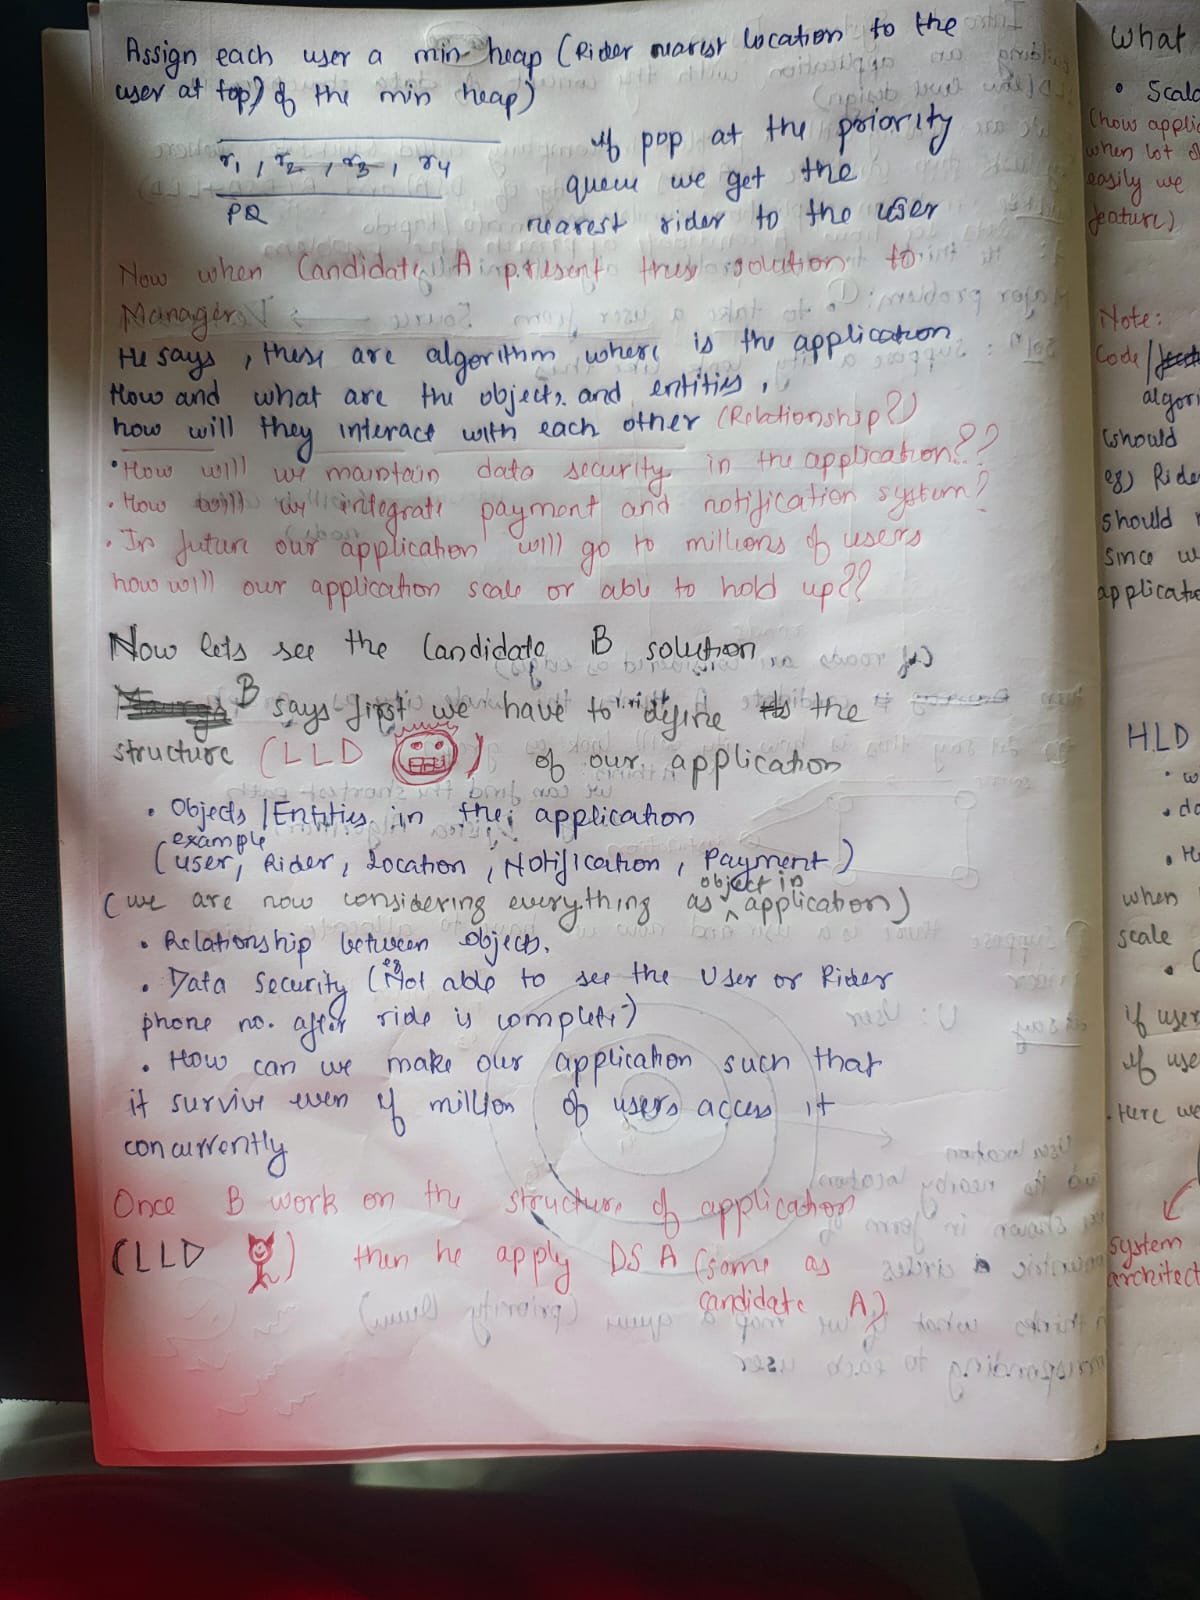 Assign each user a min heap (Rider nearest location to the
user at top) of the min heap)
r1, r2, r3, r4
PQ
if pop at the priority
queue we get the
nearest rider to the user
Now when Candidate A present these solution to
Manager
He says, these are algorithm, where is the application
How and what are the objects and entities,
how will they interact with each other (Relationship?)
• How will we maintain data security in the application??
• How will we integrate payment and notification system?
• In future our application will go to millions of users
how will our application scale or able to hold up??
Now lets see the Candidate B solution
B says first we have to define the
structure (LLD ) of our application
• Objects / Entities in the application
example
(user, Rider, Location, Notification, Payment)
(we are now considering everything as object in application)
• Relationship between objects.
• Data Security (eg Not able to see the User or Rider
phone no. after ride is complete)
• How can we make our application such that
it survive even if million of users access it
concurrently
Once B work on the structure of application
(LLD ) then he apply DSA (same as
candidate A)
What
• Scala
(how applic
when lot of
easily we
feature)
Note:
Code /
algori
(should
eg) Ride
should
Since w
applicatio
HLD
• w
• da
• H
when
scale
• C
if user
if use
• Here we
system
architect